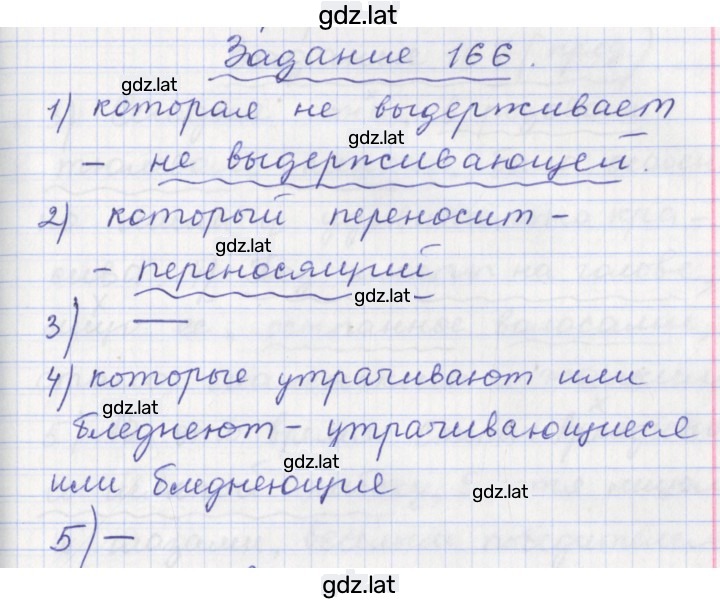 gdz.lat
Задание 166.
gdz.lat
1) которая не выдерживает
gdz.lat
- не выдерживающей.
2) который переносит -
gdz.lat
- переносящий
gdz.lat
3) —
4) которые утрачивают или
gdz.lat
бледнеют - утрачивающиеся
gdz.lat
или бледнеющие
gdz.lat
5) —
gdz.lat